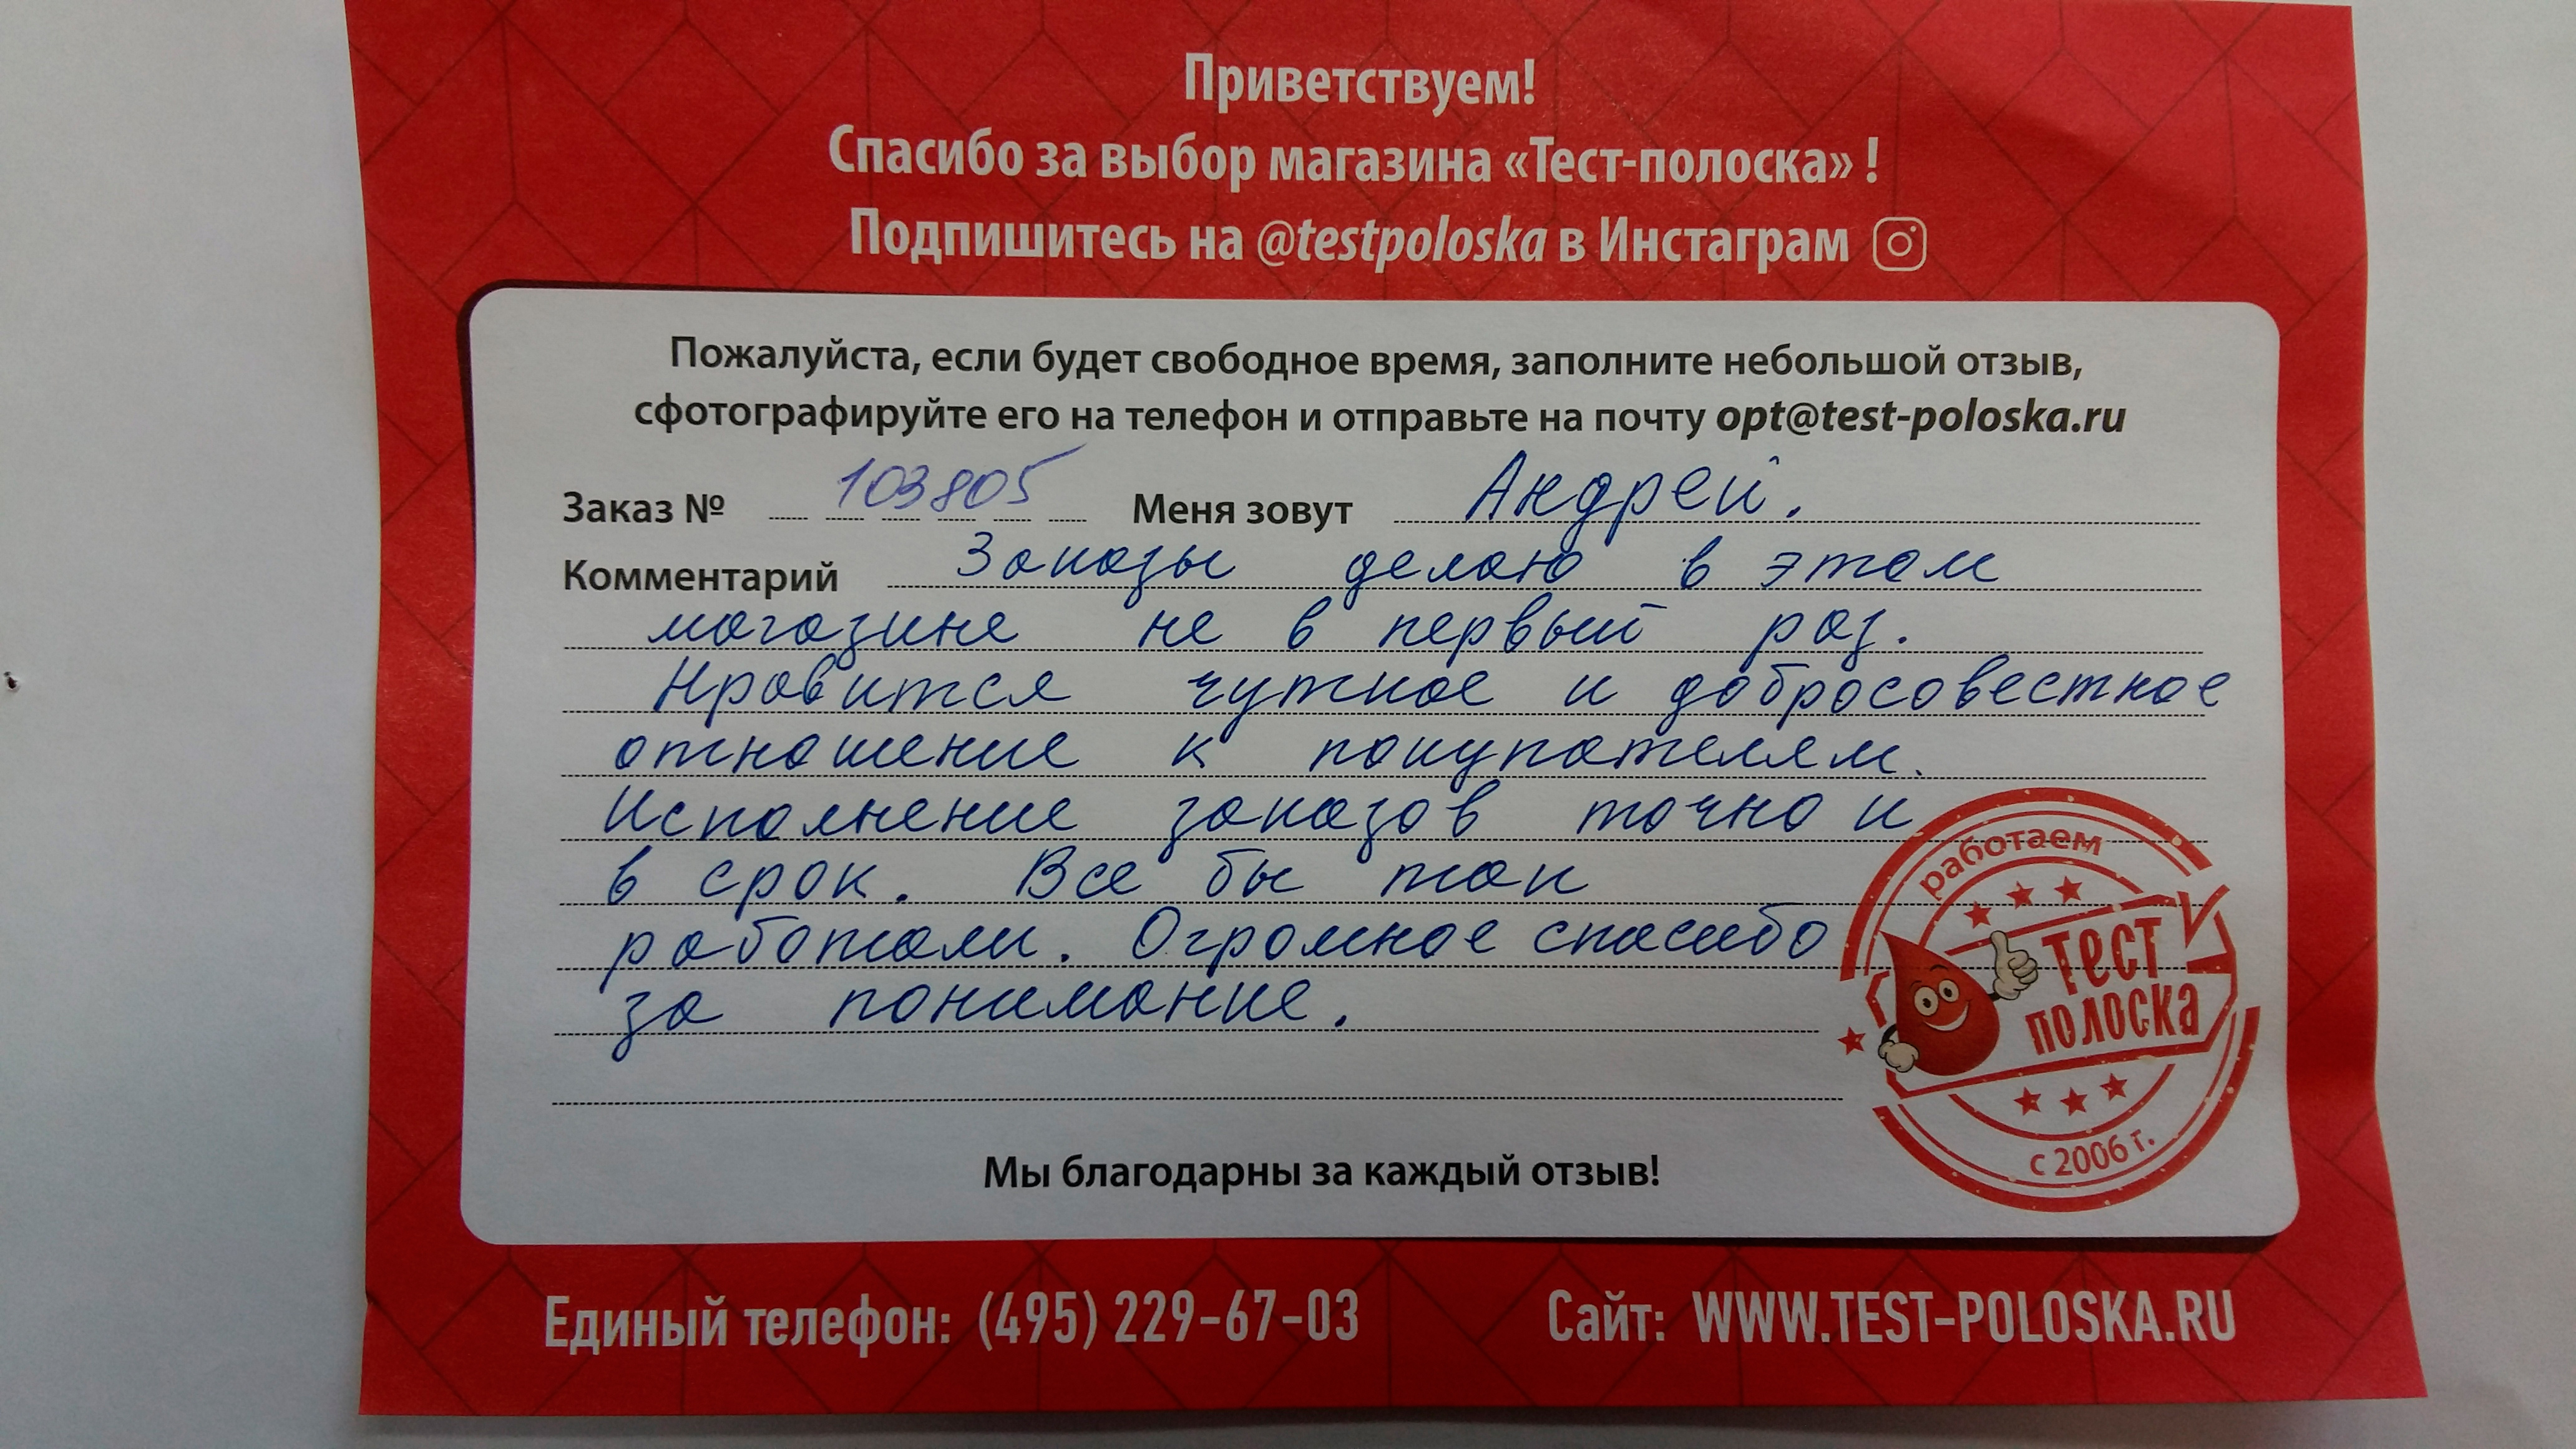 Приветствуем!
Спасибо за выбор магазина «Тест-полоска» !
Подпишитесь на @testpoloska в Инстаграм
Пожалуйста, если будет свободное время, заполните небольшой отзыв,
сфотографируйте его на телефон и отправьте на почту opt@test-poloska.ru
Заказ № 103805 Меня зовут Андрей.
Комментарий Заказы делаю в этом
магазине не в первый раз.
Нравится чуткое и добросовестное
отношение к покупателям.
Исполнение заказов точно и
в срок. Все бы так
работали. Огромное спасибо
за понимание.
работаем
ТЕСТ
ПОЛОСКА
с 2006 г.
Мы благодарны за каждый отзыв!
Единый телефон: (495) 229-67-03 Сайт: WWW.TEST-POLOSKA.RU